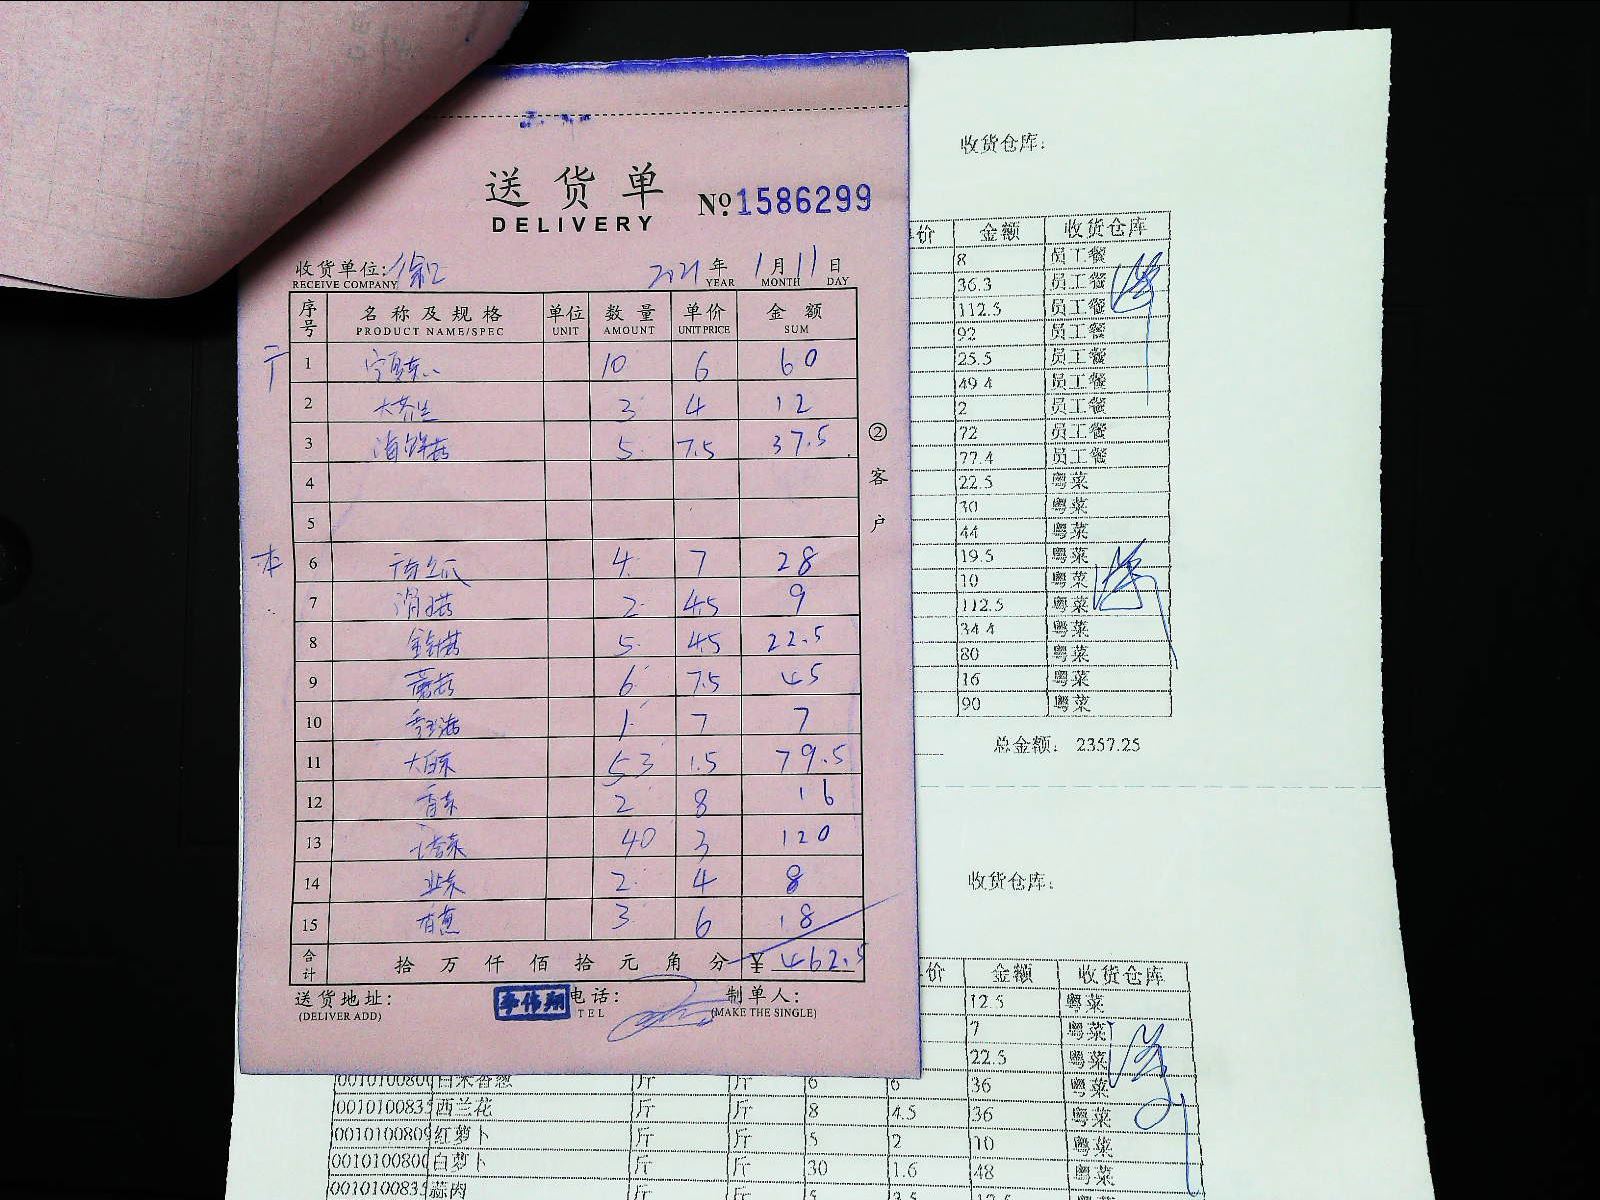 送货单
DELIVERY
№ 1586299
收货单位: 徐汇 2021年 1月 11日
RECEIVE COMPANY YEAR MONTH DAY
序号 名称及规格 单位 数量 单价 金额
PRODUCT NAME/SPEC UNIT AMOUNT UNIT PRICE SUM
1 10 6 60
2 3 4 12
3 海鲜菇 5 7.5 37.5
4
5
6 4 7 28
7 2 4.5 9
8 金针菇 5 4.5 22.5
9 蘑菇 6 7.5 45
10 1 7 7
11 大白菜 53 1.5 79.5
12 香菜 2 8 16
13 40 3 120
14 2 4 8
15 香葱 3 6 18
合计 拾万仟佰拾元角分 ¥ 462.5
送货地址: 李伟翔 电话: 制单人:
(DELIVER ADD) TEL (MAKE THE SINGLE)
②客户
收货仓库:
价 金额 收货仓库
8 员工餐
36.3 员工餐
112.5 员工餐
92 员工餐
25.5 员工餐
49.4 员工餐
2 员工餐
72 员工餐
77.4 员工餐
22.5 粤菜
30 粤菜
44 粤菜
19.5 粤菜
10 粤菜
112.5 粤菜
34.4 粤菜
80 粤菜
16 粤菜
90 粤菜
总金额: 2357.25
收货仓库:
价 金额 收货仓库
12.5 粤菜
7 粤菜
22.5 粤菜
斤 斤 6 6 36 粤菜
西兰花 斤 斤 8 4.5 36 粤菜
红萝卜 斤 斤 5 2 10 粤菜
白萝卜 斤 斤 30 1.6 48 粤菜
蒜肉 斤 斤